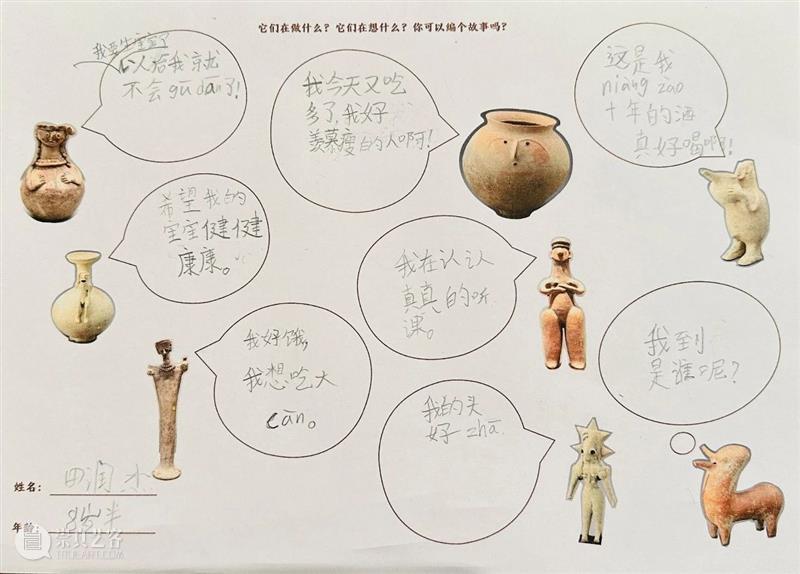 它们在做什么？它们在想什么？你可以编个故事吗？
我要生宝宝了
从今后我就
不会gū dān了！
我今天又吃
多了，我好
羡慕瘦的人啊！
这是我
niàng zao
十年的酒
真好喝啊！
希望我的
宝宝健健
康康。
我在认认
真真的听
课。
我好饿，
我想吃大
cān。
我到
是谁呢？
我的头
好zhā。
姓名：田润杰
年龄：8岁半
崇真艺客
TRUEART.COM